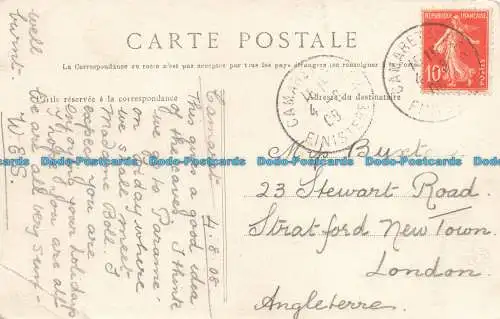 CARTE POSTALE
La Correspondance au recto n'est pas acceptée par tous les pays étrangers (se renseigner à la poste)
réservé à la correspondance
Adresse du destinataire
REPUBLIQUE FRANÇAISE
10c
CAMARET
FINISTERE
CAMARET
Camaret 4.8.08
This gives a good idea
of the caves. I think
we go to Paramé
on Friday where
we shall meet
Madame Boll. I
expect you are
enjoying your holidays
I hope you are all
well
We are all very sun-
burnt.
W.E.S.
23 Stewart Road.
Stratford New Town.
London.
Angleterre.
www.delcampe.net